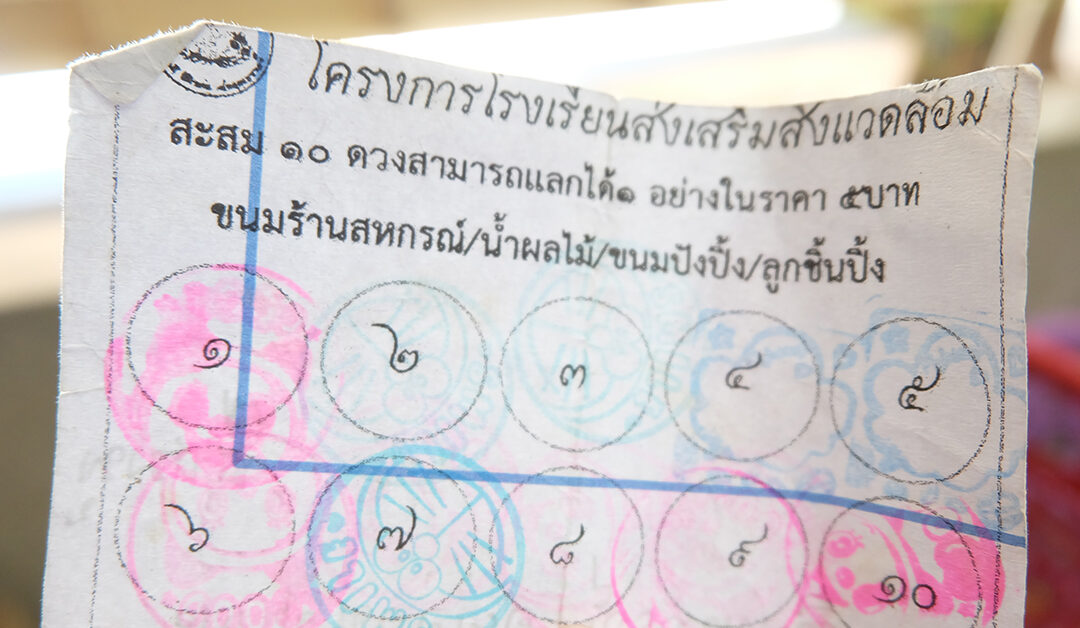 โครงการโรงเรียนส่งเสริมสิ่งแวดล้อม
สะสม ๑๐ ดวงสามารถแลกได้๑ อย่างในราคา ๕บาท
ขนมร้านสหกรณ์/น้ำผลไม้/ขนมปังปิ้ง/ลูกชิ้นปิ้ง
๑ ๒ ๓ ๔ ๕
๖ ๗ ๘ ๙ ๑๐